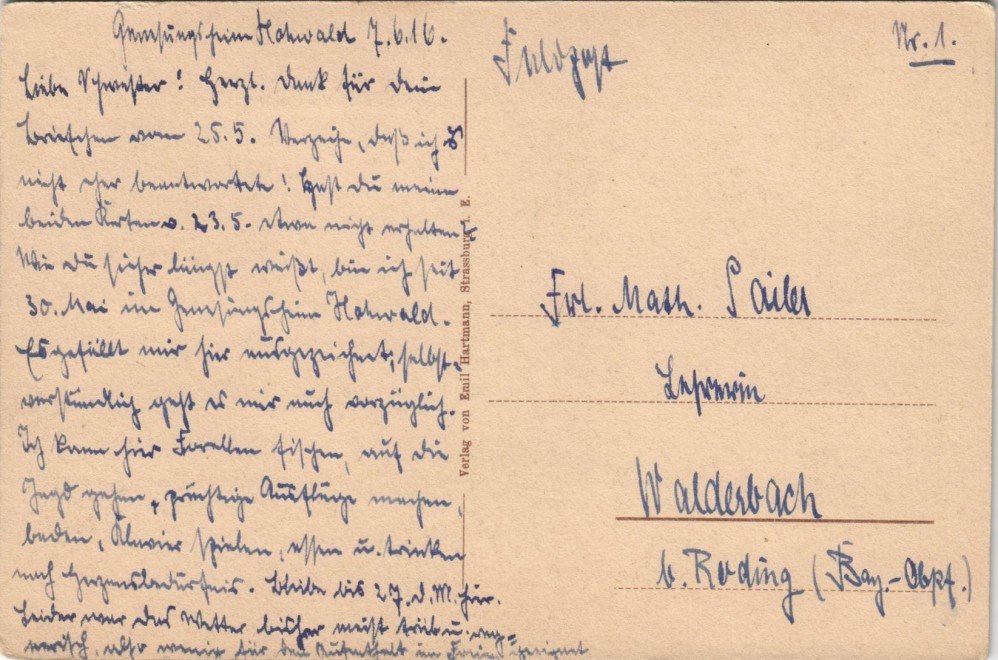 Genesungsheim Hohwald 7.6.16.
Liebe Schwester! Herzl. Dank für dein
Briefchen vom 25.5. Verzeihe, daß ich es
nicht eher beantwortete! Hast du meine
beiden Karten v. 23.5. etwa nicht erhalten?
Wie du sicher längst weißt, bin ich seit
30. Mai im Genesungsheim Hohwald.
Es gefällt mir hier ausgezeichnet; selbst-
verständlich geht es mir auch vorzüglich.
Ich kann hier Forellen fischen, auf die
Jagd gehen, prächtige Ausflüge machen,
baden, Klavier spielen, essen u. trinken
nach Herzensbedürfnis. Bleibe bis 27. d. M. hier.
Leider war das Wetter bisher meist trüb u. reg-
nerisch, also wenig für den Aufenthalt im Freien geeignet
Verlag von Emil Hartmann, Strassburg i. E.
Feldpost
Nr. 1.
Frl. Math. Sailer
Lehrerin
Walderbach
b. Roding (Bay.-Obpf.)